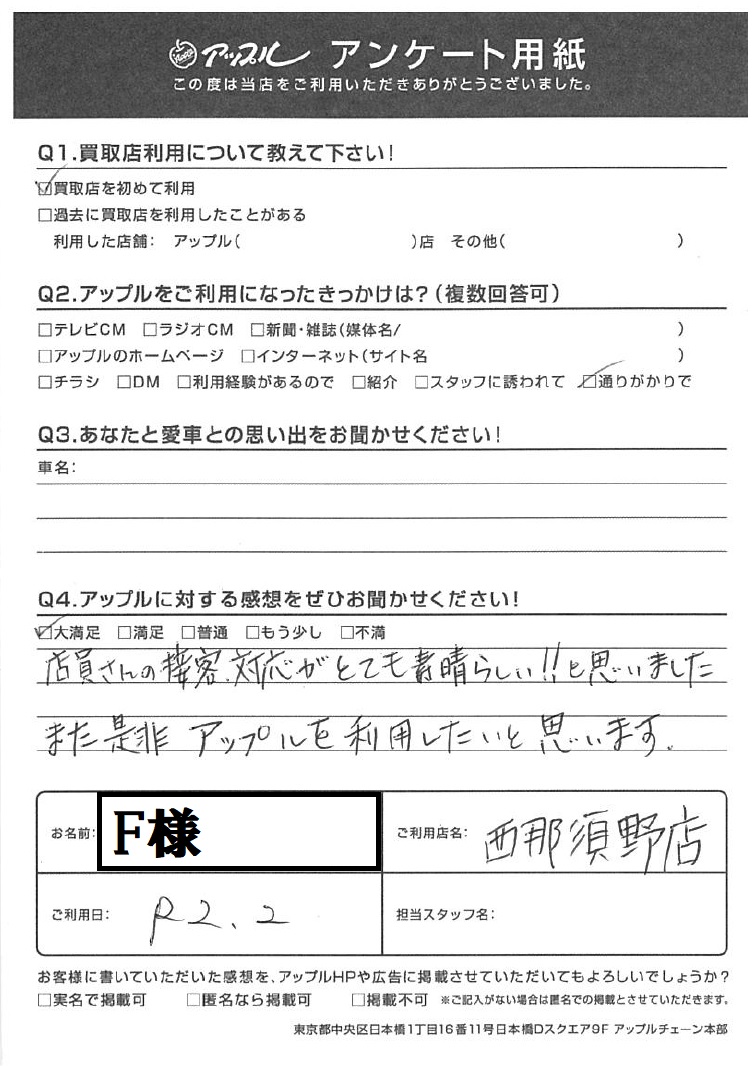 アップル アンケート用紙
この度は当店をご利用いただきありがとうございました。
Q1.買取店利用について教えて下さい！
☑買取店を初めて利用
□過去に買取店を利用したことがある
利用した店舗： アップル（ ）店 その他（ ）
Q2.アップルをご利用になったきっかけは？（複数回答可）
□テレビCM □ラジオCM □新聞・雑誌（媒体名/ ）
□アップルのホームページ □インターネット（サイト名 ）
□チラシ □DM □利用経験があるので □紹介 □スタッフに誘われて ☑通りがかりで
Q3.あなたと愛車との思い出をお聞かせください！
車名：
Q4.アップルに対する感想をぜひお聞かせください！
☑大満足 □満足 □普通 □もう少し □不満
店員さんの接客、対応がとても素晴らしい!!と思いました
また是非 アップルを利用したいと思います。
お名前： F様 ご利用店名： 西那須野店
ご利用日： R2.2 担当スタッフ名：
お客様に書いていただいた感想を、アップルHPや広告に掲載させていただいてもよろしいでしょうか？
□実名で掲載可 □匿名なら掲載可 □掲載不可 ※ご記入がない場合は匿名での掲載とさせていただきます。
東京都中央区日本橋1丁目16番11号日本橋Dスクエア9F アップルチェーン本部